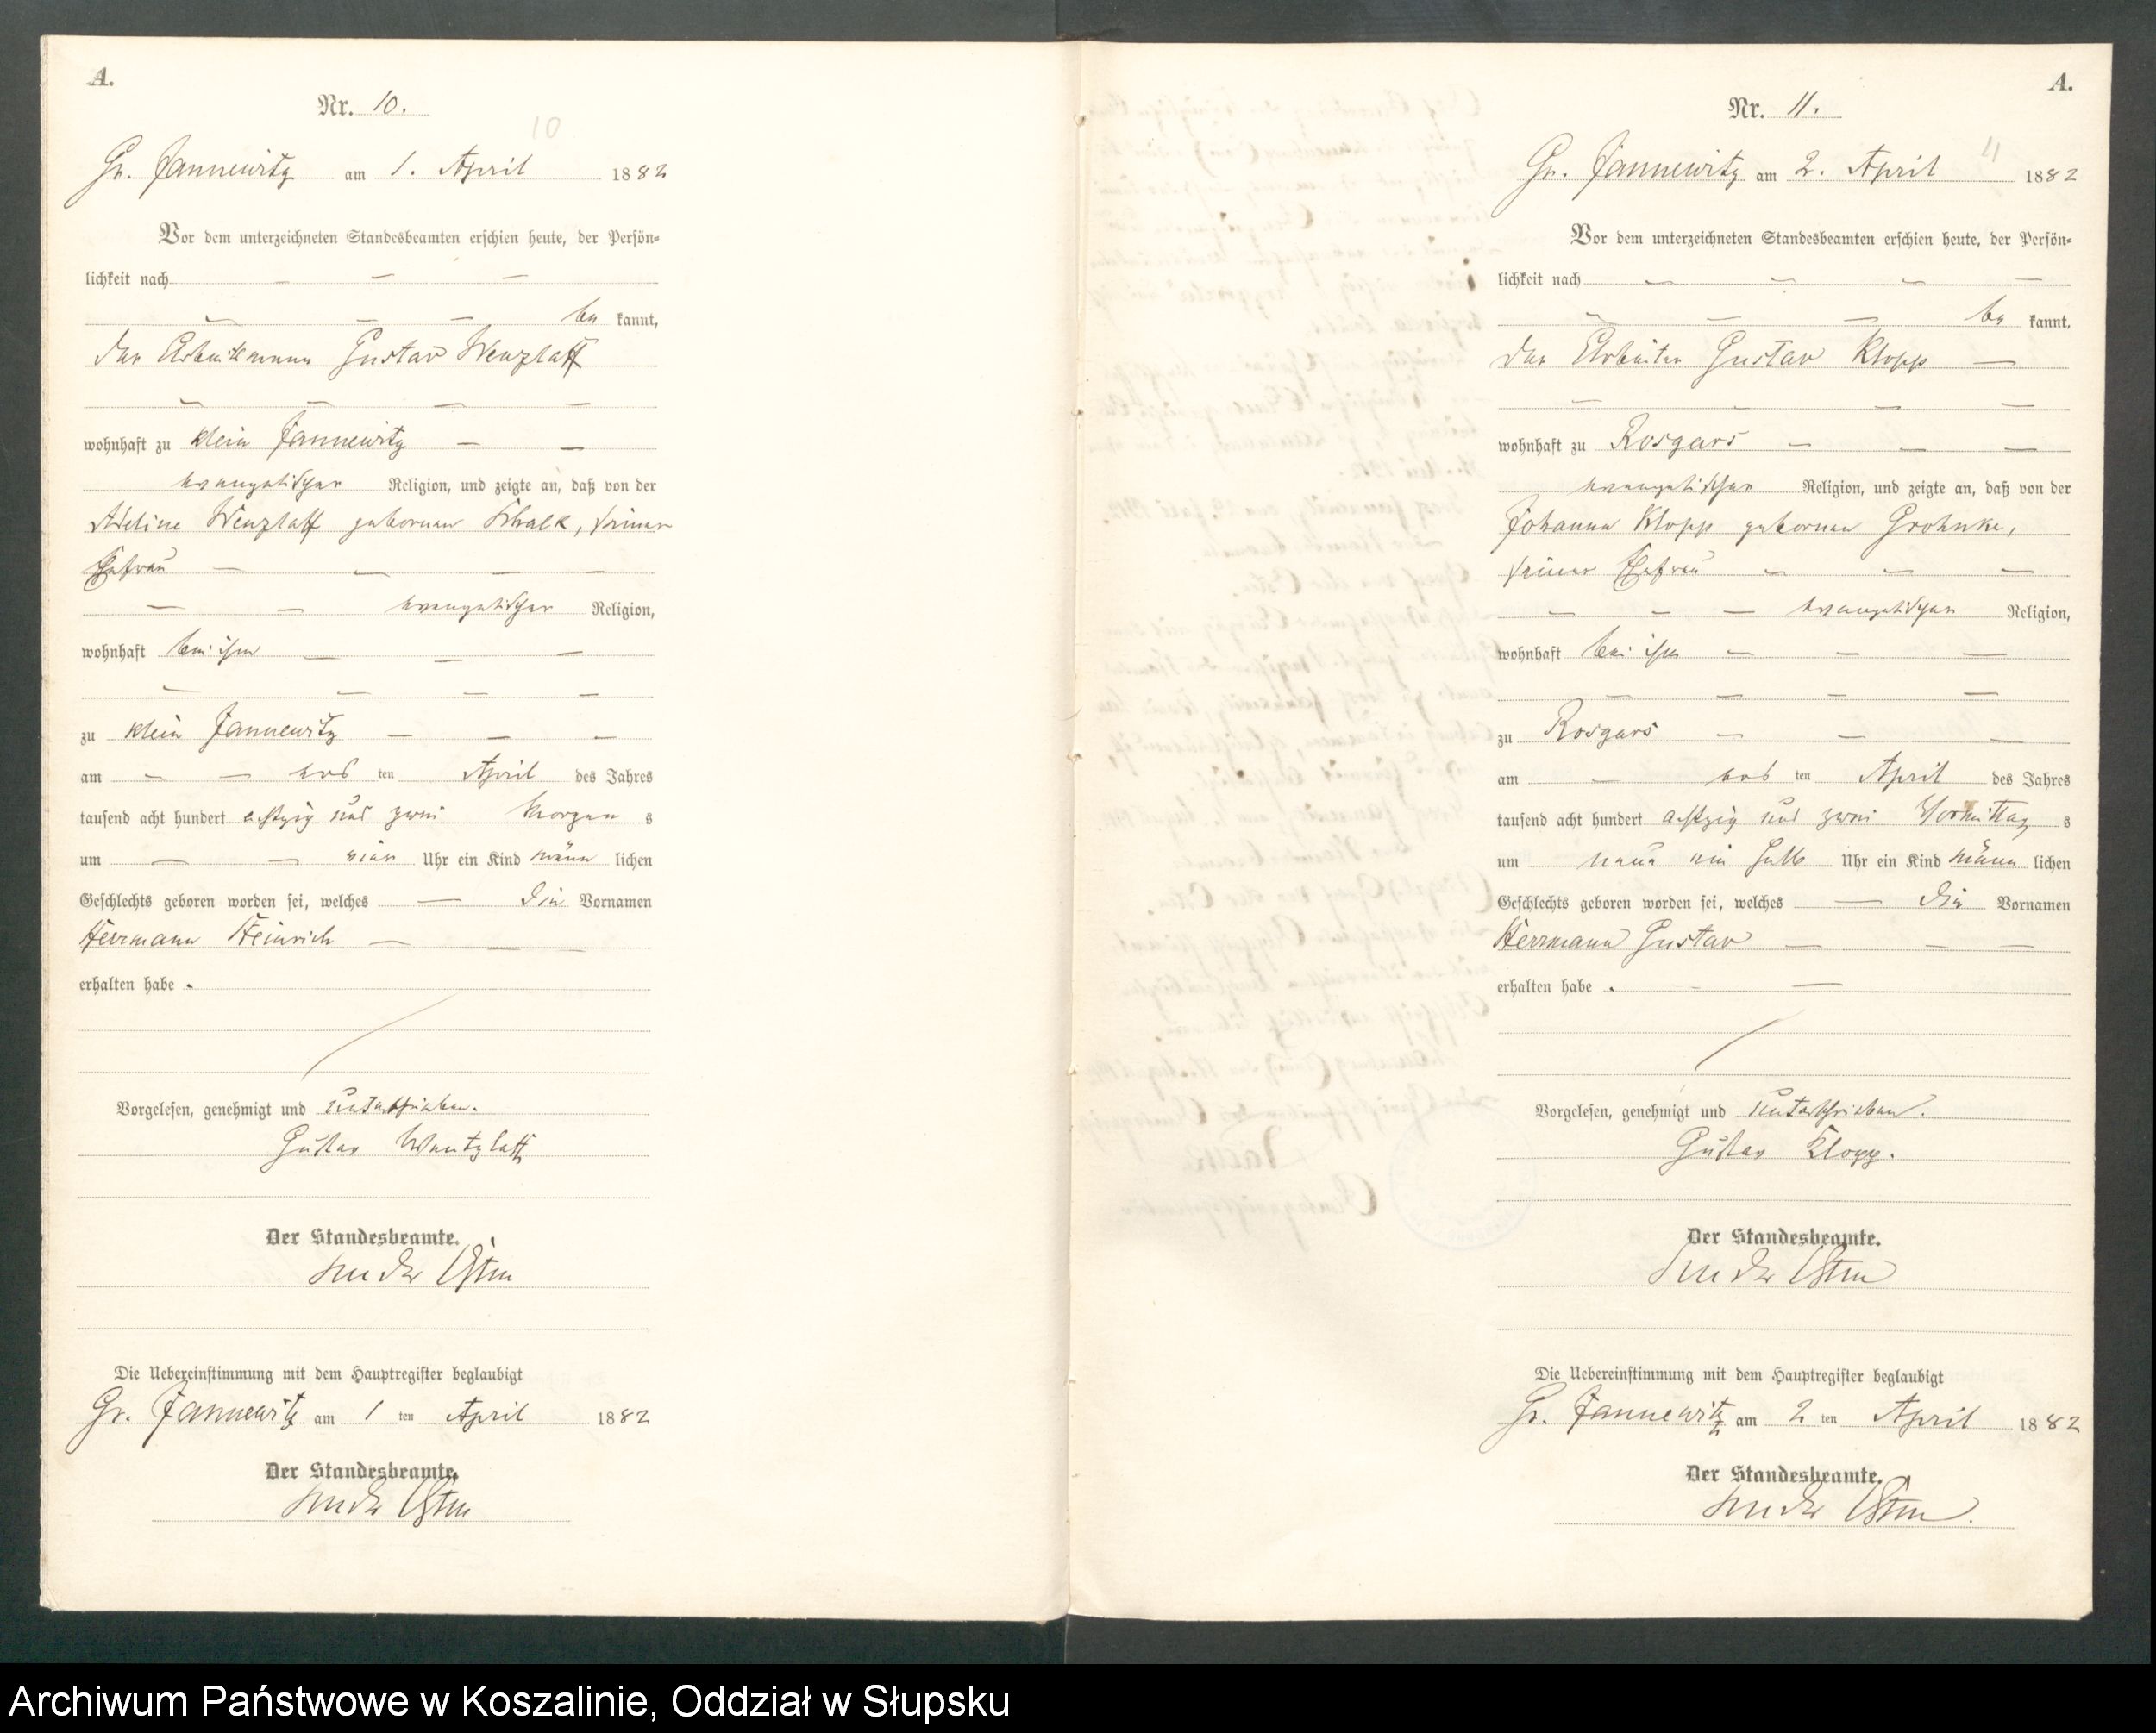 A.
Nr. 10.
10
Gr. Jannewitz am 1. April 1882
Vor dem unterzeichneten Standesbeamten erschien heute, der Persön-
lichkeit nach
be kannt,
der Arbeitsmann Gustav Wenzlaff
wohnhaft zu Klein Jannewitz
evangelischer Religion, und zeigte an, daß von der
Adeline Wenzlaff geborenen Schalk, seiner
Ehefrau
evangelischer Religion,
wohnhaft bei ihm
zu Klein Jannewitz
am ersten April des Jahres
tausend acht hundert achtzig und zwei Morgens
um vier Uhr ein Kind männlichen
Geschlechts geboren worden sei, welches die Vornamen
Herrmann Heinrich
erhalten habe.
Vorgelesen, genehmigt und unterschrieben.
Gustav Wentzlaff
Der Standesbeamte.
von der Osten
Die Uebereinstimmung mit dem Hauptregister beglaubigt
Gr. Jannewitz am 1 ten April 1882
Der Standesbeamte.
von der Osten
A.
Nr. 11.
11
Gr. Jannewitz am 2. April 1882
Vor dem unterzeichneten Standesbeamten erschien heute, der Persön-
lichkeit nach
be kannt,
der Arbeiter Gustav Klopp
wohnhaft zu Rosgars
evangelischer Religion, und zeigte an, daß von der
Johanna Klopp geborenen Grohnke,
seiner Ehefrau
evangelischer Religion,
wohnhaft bei ihm
zu Rosgars
am ersten April des Jahres
tausend acht hundert achtzig und zwei Vormittags
um neun ein halb Uhr ein Kind männlichen
Geschlechts geboren worden sei, welches die Vornamen
Herrmann Gustav
erhalten habe.
Vorgelesen, genehmigt und unterschrieben.
Gustav Klopp.
Der Standesbeamte.
von der Osten
Die Uebereinstimmung mit dem Hauptregister beglaubigt
Gr. Jannewitz am 2 ten April 1882
Der Standesbeamte.
von der Osten.
Archiwum Państwowe w Koszalinie, Oddział w Słupsku